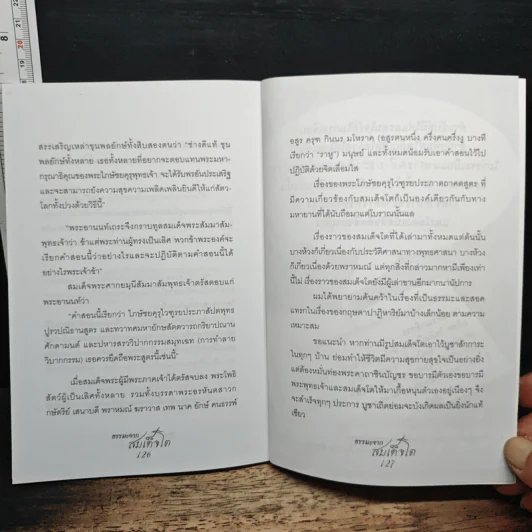 สรรเสริญเหล่าขุนพลยักษ์ทั้งสิบสองตนว่า "ช่างดีแท้ ขุน
พลยักษ์ทั้งหลาย เธอทั้งหลายที่อยากจะตอบแทนพระมหา-
กรุณาธิคุณของพระไภษัชยคุรุพุทธเจ้า จะได้รับพรอันประเสริฐ
และจะสามารถยังความสุขความเพลิดเพลินยินดีให้แก่สัตว์-
โลกทั้งปวงด้วยวิธีนี้"
"พระอานนท์เถระจึงกราบทูลสมเด็จพระสัมมาสัม-
พุทธเจ้าว่า ข้าแต่พระท่านผู้ทรงเป็นเลิศ พวกข้าพระองค์จะ
เรียกคำสอนนี้ว่าอย่างไรและจะปฏิบัติตามคำสอนนี้ได้
อย่างไรพระเจ้าข้า"
สมเด็จพระศากยมุนีสัมมาสัมพุทธเจ้าตรัสตอบแก่
พระอานนท์ว่า
"คำสอนนี้เรียกว่า ไภษัชยคุรุไวฑูรยประภาสัปตพุทธ
ปูรวปณิธานสูตร และทวาทศมหายักษ์สัตตวารกริยาปณาน
ศักดามนต์ และปหารสรววิปากกรรมสมุทเฉท (การทำลาย
วิบากกรรม) เธอควรยึดถือพระสูตรนี้เช่นนี้"
เมื่อสมเด็จพระผู้มีพระภาคเจ้าได้ตรัสจบลง พระโพธิ
สัตว์ผู้เป็นเลิศทั้งหลาย รวมทั้งบรรดาพระอรหันตสาวก
กษัตริย์ เสนาบดี พราหมณ์ ฆราวาส เทพ นาค ยักษ์ คนธรรพ์
ธรรมะจาก
สมเด็จโต
126
อสูร ครุฑ กินนร มโหราค (อสูรตนหนึ่ง ครึ่งคนครึ่งงู บางที
เรียกว่า "ราหู") มนุษย์ และทั้งหมดน้อมรับเอาคำสอนไว้ไป
ปฏิบัติด้วยจิตเลื่อมใส
เรื่องของพระไภษัชยคุรุไวฑูรยประภาตถาคตสูตร ที่
มีความเกี่ยวข้องกับสมเด็จโตก็เป็นองค์เดียวกันกับทาง
มหายานที่ได้นับถือมาแต่โบราณนั้นแล
เรื่องราวของสมเด็จโตที่ได้เล่ามาทั้งหมดแต่ต้นนั้น
บางห้วงก็เกี่ยวเนื่องกับประวัติศาสนาทางพุทธศาสนา บางห้วง
ก็เกี่ยวเนื่องด้วยพราหมณ์ แต่ทุกสิ่งที่กล่าวมาหามีเพียงเท่า
นี้ไม่ เรื่องราวของสมเด็จโตยังมีผู้เล่าขานอีกมากนานัปการ
ผมได้พยายามค้นคว้าในเรื่องที่เป็นธรรมะและสอด
แทรกในเรื่องของกฤษดาปาฏิหาริย์มาบ้างเล็กน้อย ตามความ
เหมาะสม
ขอแนะนำ หากท่านมีรูปสมเด็จโตเอาไว้บูชาสักการะ
ในทุกๆ บ้าน ย่อมทำให้ชีวิตมีความสุขกายสุขใจเป็นอย่างยิ่ง
แต่ต้องหมั่นท่องพระคาถาชินบัญชร ขอบารมีตัวเองขอบารมี
พระพุทธเจ้าและสมเด็จโตให้มาเกื้อหนุนตัวเองอยู่เนืองๆ จึง
จะสำเร็จทุกๆ ประการ บูชาเถิดย่อมจะบังเกิดผลเป็นยิ่งนักแท้
เชียว
ธรรมะจาก
สมเด็จโต
127